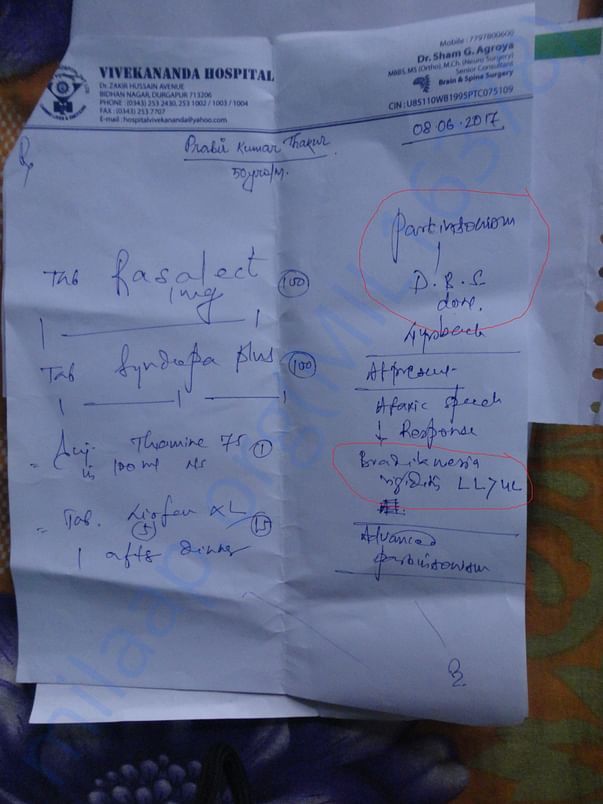 VIVEKANANDA HOSPITAL
Dr. ZAKIR HUSSAIN AVENUE
BIDHAN NAGAR, DURGAPUR 713206
PHONE : (0343) 253 2430, 253 1002 / 1003 / 1004
FAX : (0343) 253 7707
E-mail : hospitalvivekananda@yahoo.com
Mobile : 7797800600
Dr. Sham G. Agroya
MBBS, MS (Ortho), M.Ch. (Neuro Surgery)
Senior Consultant
Brain & Spine Surgery
CIN : U85110WB1995PTC075109
08.06.2017
Prabir Kumar Thakur
50yrs/M.
Tab Rasalect 100
1mg
1 1
Tab Syndopa plus 100
1 1 1
Inj. Thamine 75 1
in 100 ml NS
Tab. Liofen XL 15
1 after dinner
Parkinsonism
D.B.S.
done.
4yrs back
At present
Ataxic speech
↓ Response
Bradiknesia
rigidity LL > UL
Advanced
parkinsonism
milaap.org(MIL 163781)